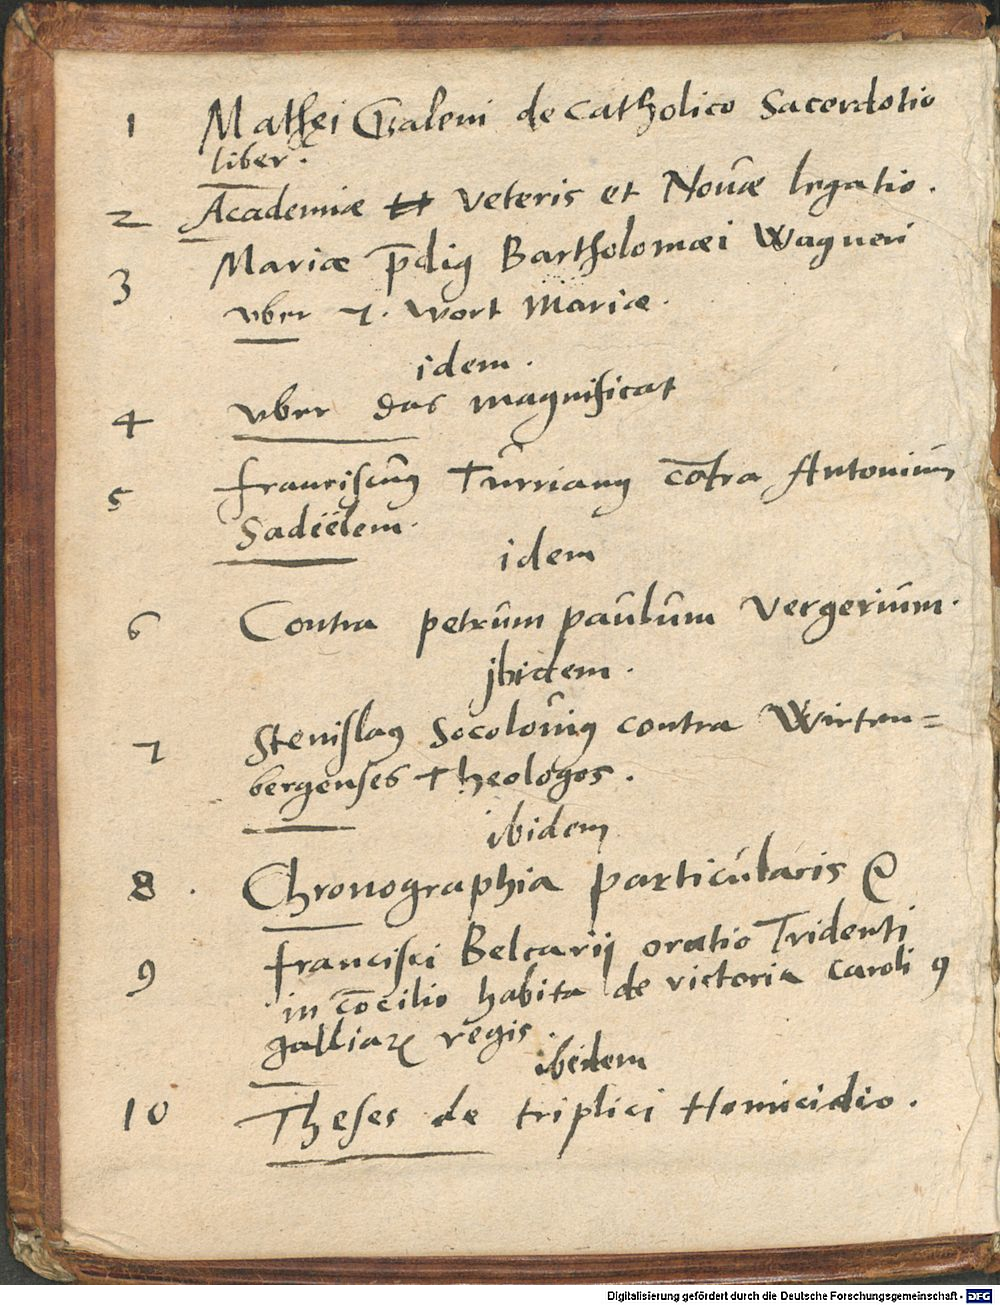 1 Mathęi Galeni de catholico Sacerdotio
liber.
2 Academiæ et veteris et Nouæ legatio.
3 Mariæ p̄dig Bartholomæi Wagneri
vber 7. wort Mariæ.
idem.
4 vber das magnificat
5 franciscꝰ Turrianꝰ cōtra Antonium
Sadeëlem.
idem
6 Contra petrum paulum Vergerium.
jbidem.
7 Stenislaꝰ Socolouiꝰ contra Wirten=
bergenses Theologos.
ibidem
8. Chronographia particularis
9 francisci Belcarij oratio Tridenti
in cōcilio habita de victoria Caroli 9
galliaꝝ regis.
ibidem
10 Theses de triplici Homicidio.
Digitalisierung gefördert durch die Deutsche Forschungsgemeinschaft - DFG